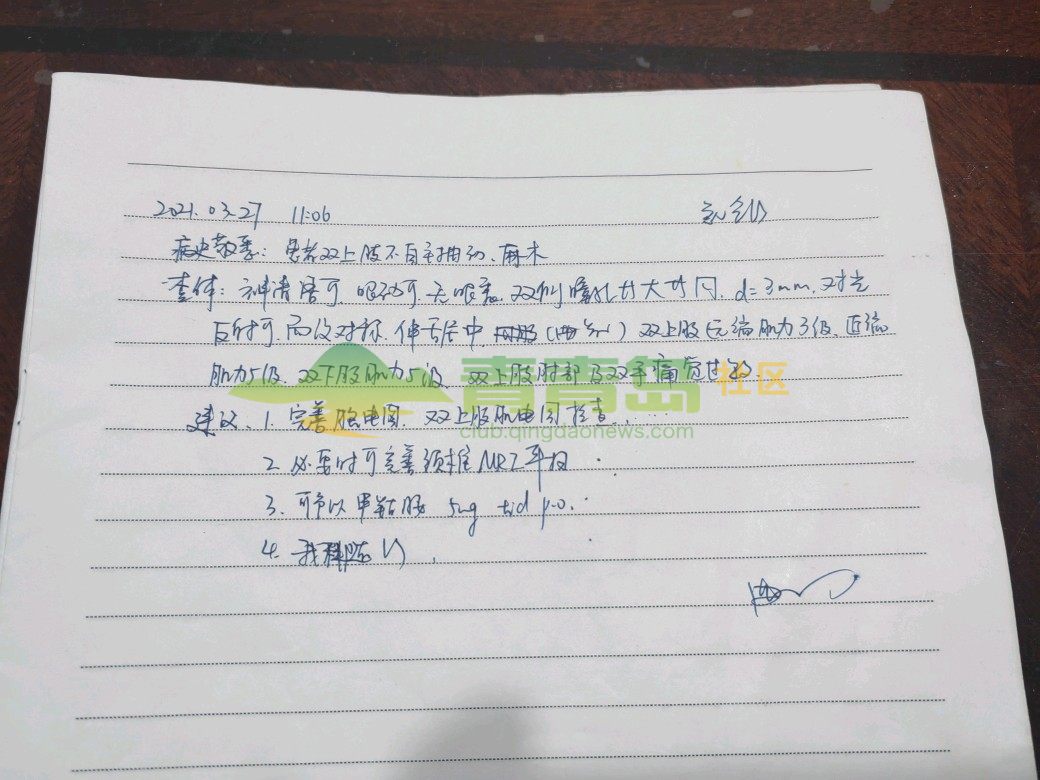 2021.03.27 11:06
病史敬悉：患者双上肢不自主抽动、麻木
查体：神清语可，眼动可，无眼震，双侧瞳孔等大等圆，d=3mm，对光
反射可，面纹对称，伸舌居中，双上肢远端肌力3级，近端
肌力5级，双下肢肌力5级，双上肢肘部及双手痛觉过敏
青青岛社区
club.qingdaonews.com
建议：1. 完善脑电图、双上肢肌电图检查
2. 必要时可完善颈椎MRI平扫
3. 可予以甲钴胺 5mg tid p.o.
4. 我科随诊